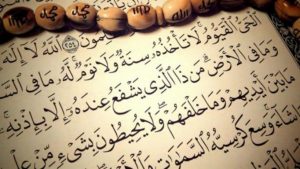 الله
محمد
ٱللَّهُ لَآ إِلَٰهَ
ٱلْحَىُّ ٱلْقَيُّومُ لَا تَأْخُذُهُۥ سِنَةٌ وَلَا نَوْمٌ لَّهُۥ مَا فِى ٱلسَّ
وَمَا فِى ٱلْأَرْضِ مَن ذَا ٱلَّذِى يَشْفَعُ عِندَهُۥٓ إِلَّا بِإِذْنِهِۦ
مَا بَيْنَ أَيْدِيهِمْ وَمَا خَلْفَهُمْ وَلَا يُحِيطُونَ بِشَىْءٍ مِّنْ
شَآءَ وَسِعَ كُرْسِيُّهُ ٱلسَّمَٰوَٰتِ